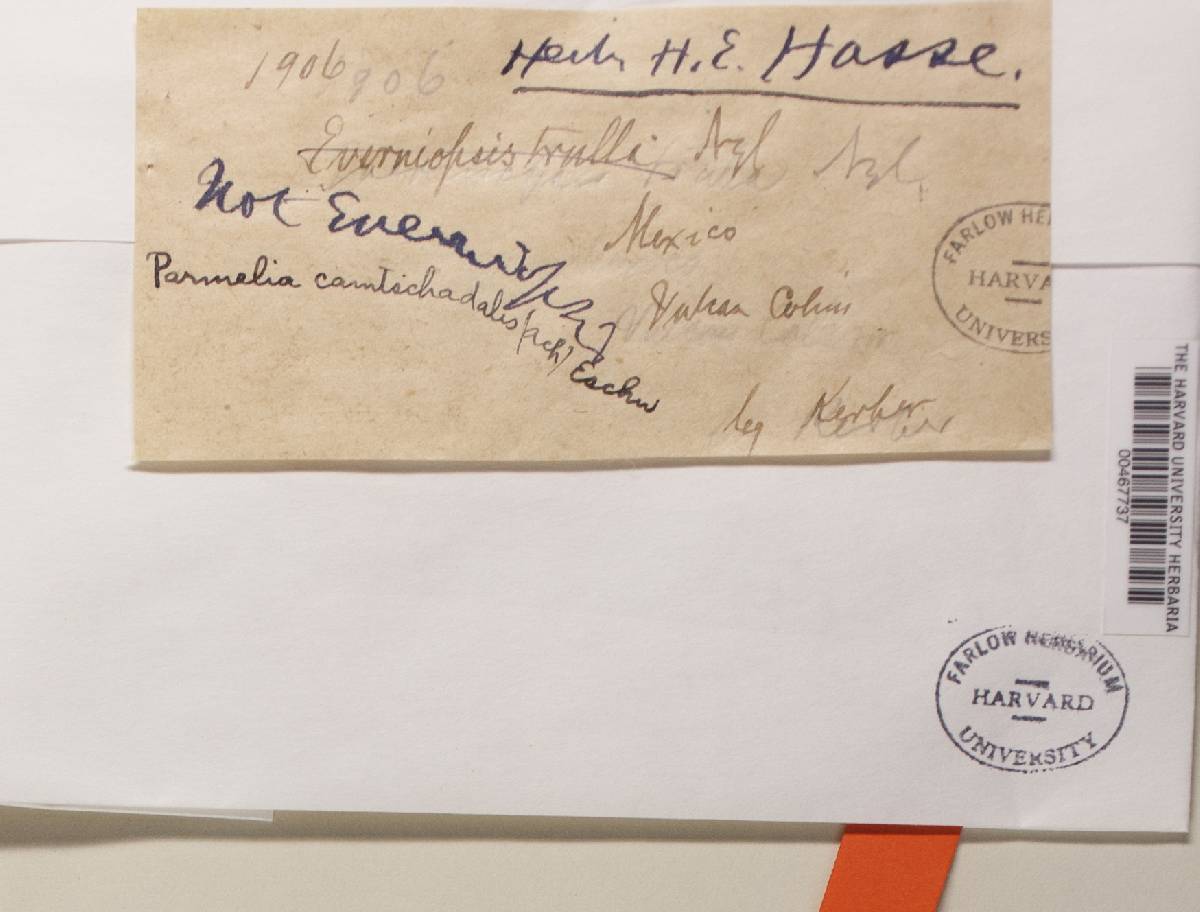 1906
Herb. H.E. Hasse.
Everniopsis trulla Nyl
Not Everniopsis
Mexico
Parmelia camtschadalis (Ach) Eschw
Vulcan Colim
leg Kerber
FARLOW HE
HARVA
UNIVERS
THE HARVARD UNIVERSITY HERBARIA
00467737
FARLOW HERBARIUM
HARVARD
UNIVERSITY